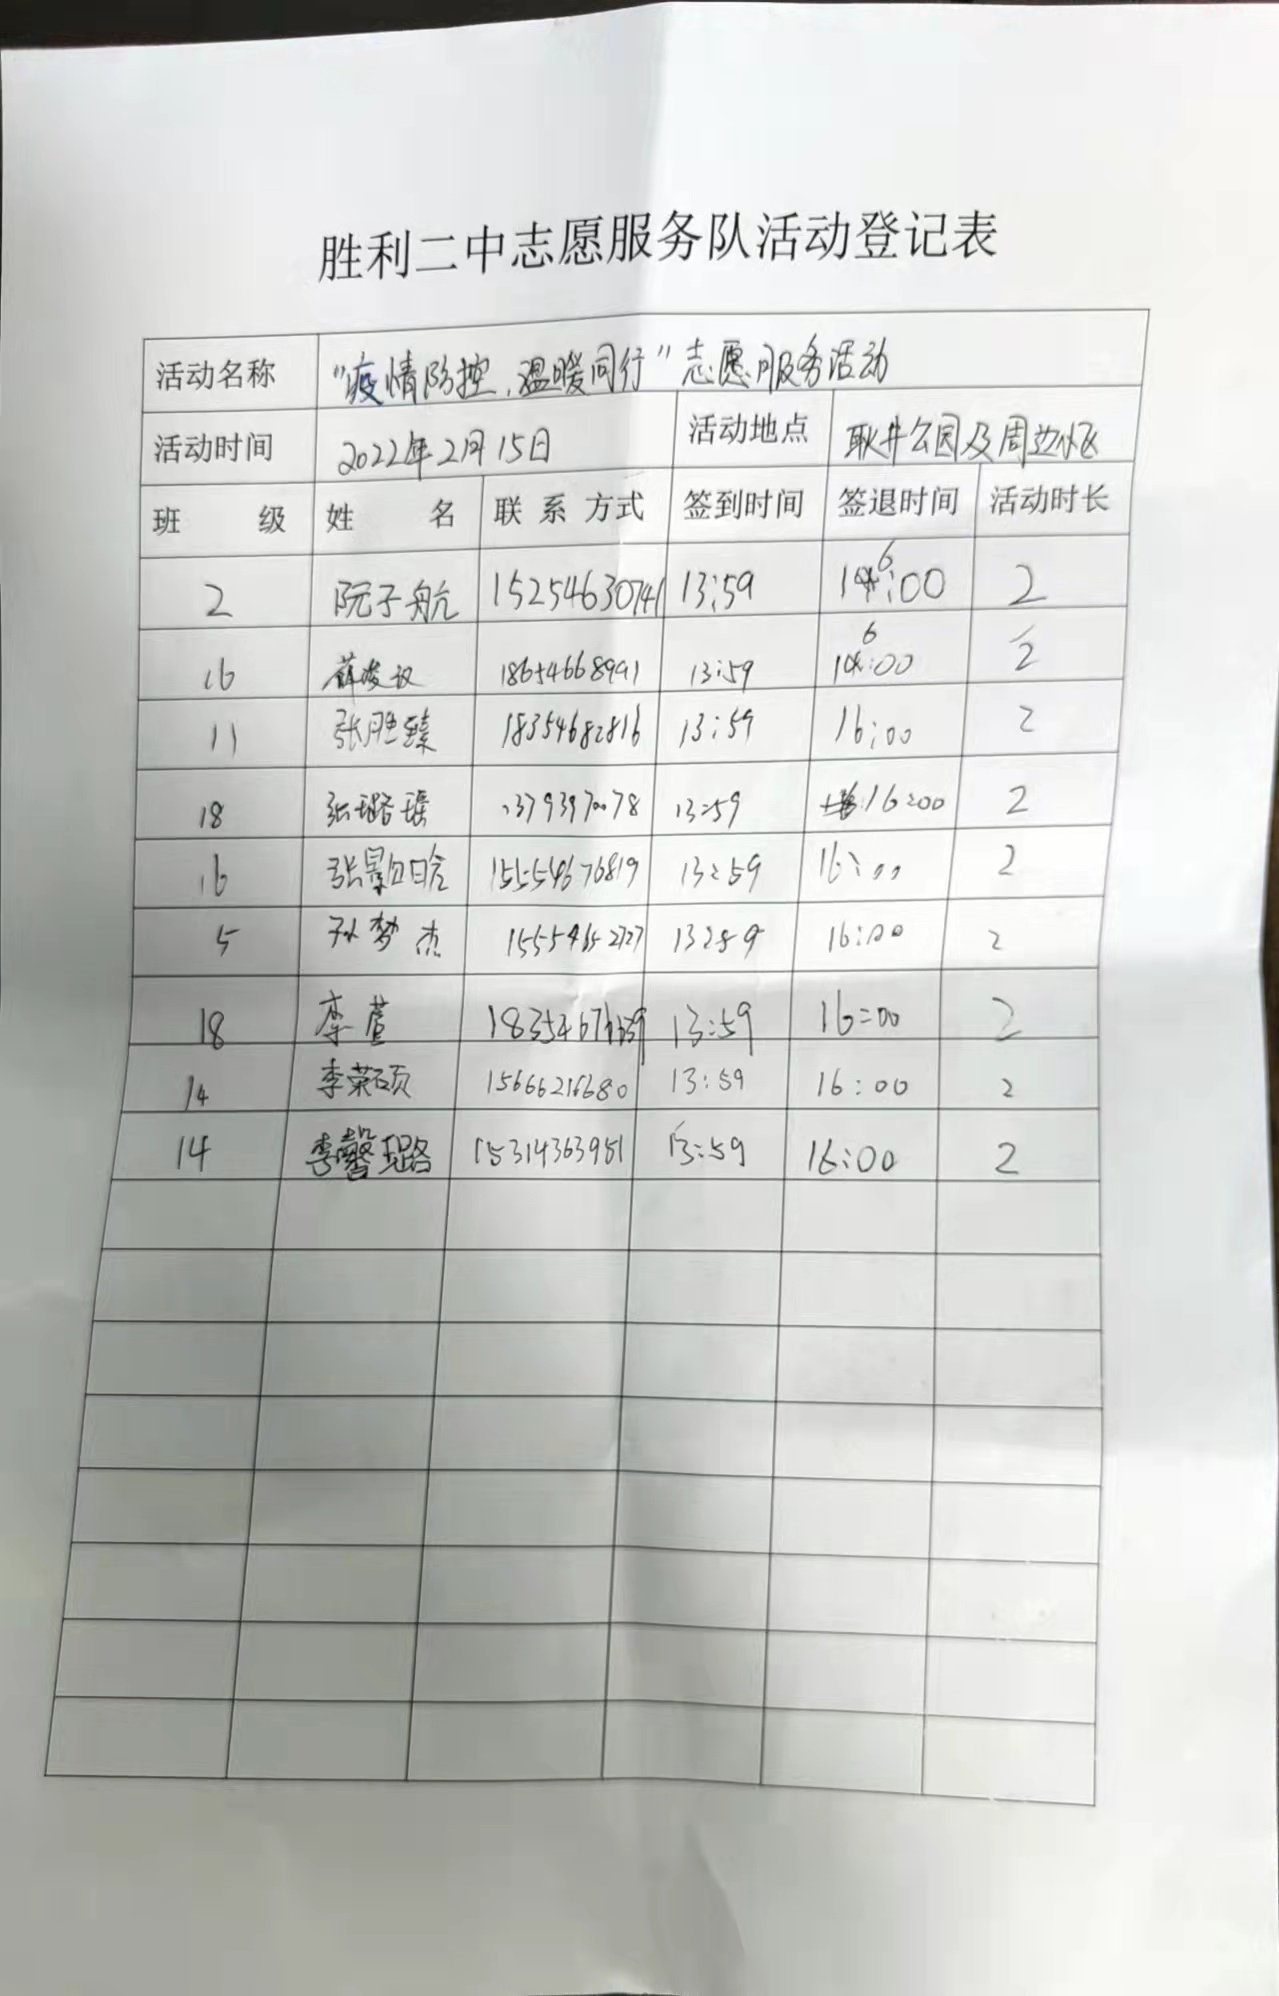 胜利二中志愿服务队活动登记表
活动名称 "疫情防控、温暖同行"志愿服务活动
活动时间 2022年2月15日 活动地点 耿井公园及周边小区
班 级 姓 名 联 系 方式 签到时间 签退时间 活动时长
2 阮子航 15254630741 13:59 16:00 2
16 薛凌议 18654668991 13:59 16:00 2
11 张胜臻 18354682816 13:59 16:00 2
18 张璐瑶 13:59 16:00 2
16 张景晗 15554676819 13:59 16:00 2
5 孙梦杰 15554652727 13:59 16:00 2
18 李萱 13:59 16:00 2
14 李荣硕 15666216680 13:59 16:00 2
14 李馨璐 15314363951 13:59 16:00 2